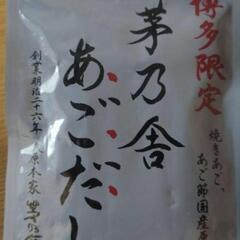 博多限定
焼きあご、
あご節国産原
茅乃舎
あごだし
創業明治二十六年
原本家 茅乃舎